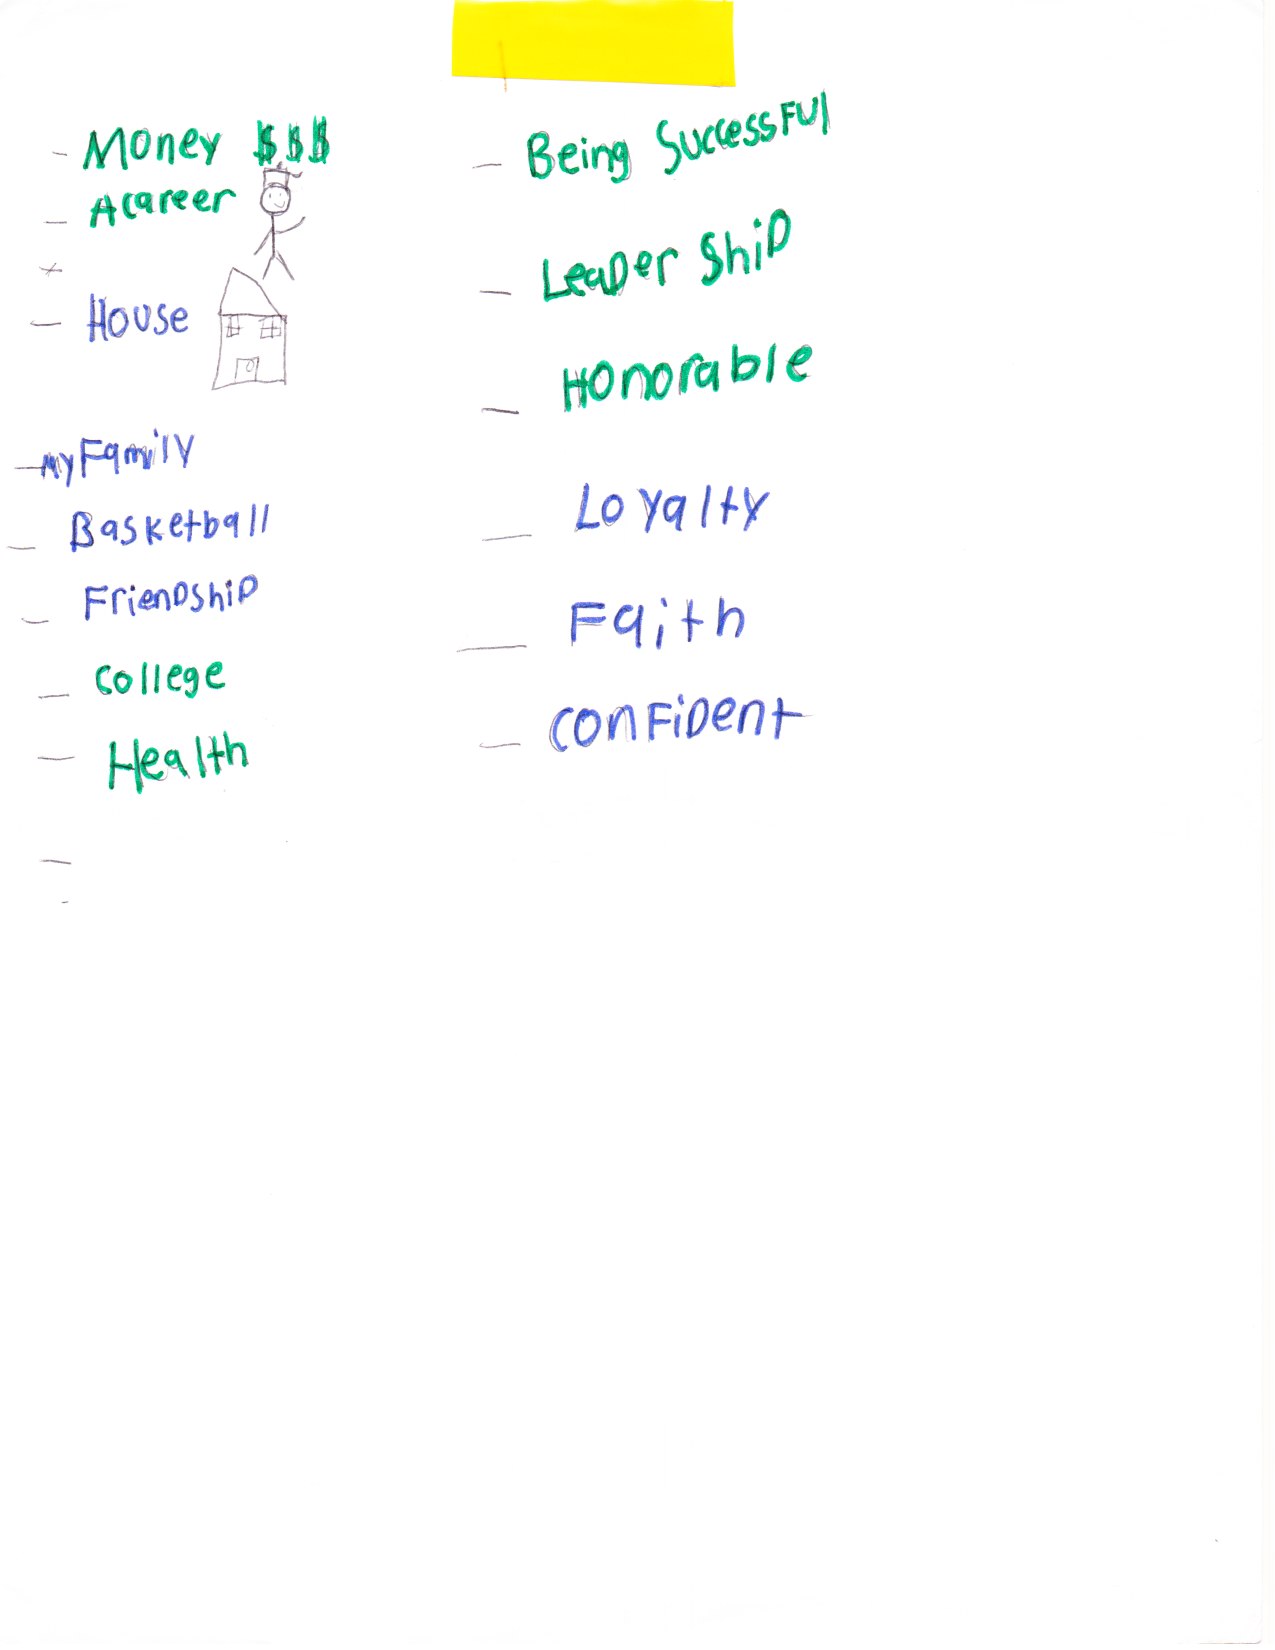 - Money $$$
- A career
- House
- My Family
- Basketball
- Friendship
- college
- Health
- Being SuccessFul
- Leader Ship
- Honorable
- Loyalty
- Faith
- confident